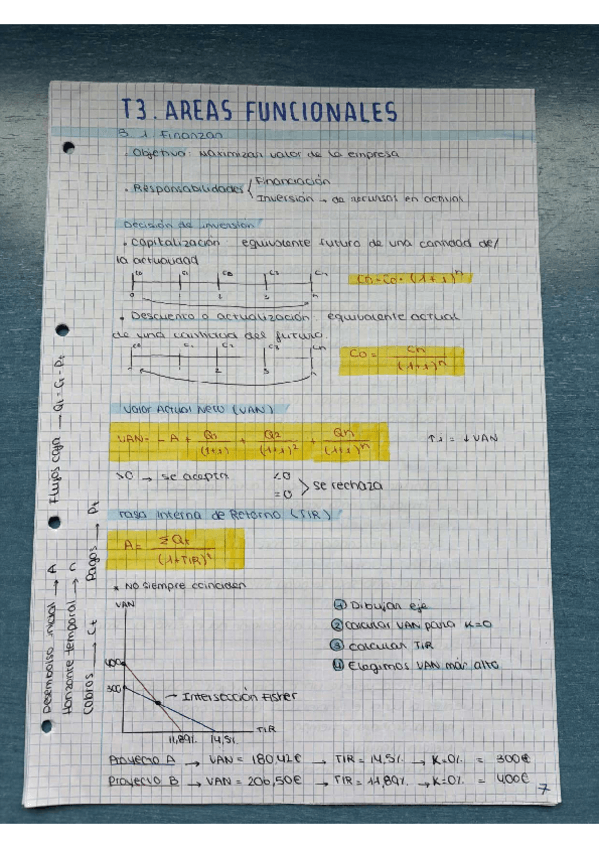 T3. AREAS FUNCIONALES
3.1. Finanzas
. Objetivo: Maximizar valor de la empresa
. Responsabilidades Financiación
Inversión → de recursos en activos
Decisión de inversión
. Capitalización: equivalente futuro de una cantidad de/
la actualidad
C0 C1 C2 C3 Cn
0 1 2 3 n
Cn = C0 · (1+i)^n
. Descuento o actualización: equivalente actual
de una cantidad del futuro
C0 C1 C2 C3 Cn
C0 = Cn / (1+i)^n
Valor Actual Neto (VAN)
VAN = - A + Q1/(1+i) + Q2/(1+i)^2 + Qn/(1+i)^n
↑i = ↓VAN
>0 → se acepta
<0
=0 > se rechaza
Tasa Interna de Retorno (TIR)
A = ΣQt / (1+TIR)^t
* No siempre coinciden
VAN
400
300
Intersección Fisher
TIR
11,89% 14,5%
① Dibujar eje
② calcular VAN para K=0
③ calcular TIR
④ Elegimos VAN más alto
Proyecto A → VAN = 180,42€ → TIR = 14,5% → K=0% = 300€
Proyecto B → VAN = 206,50€ → TIR = 11,89% → K=0% = 400€
7
Desembolso inicial → A
Horizonte temporal → n
Cobros → Ct
Pagos → Pt
Flujos caja → Qt = Ct - Pt